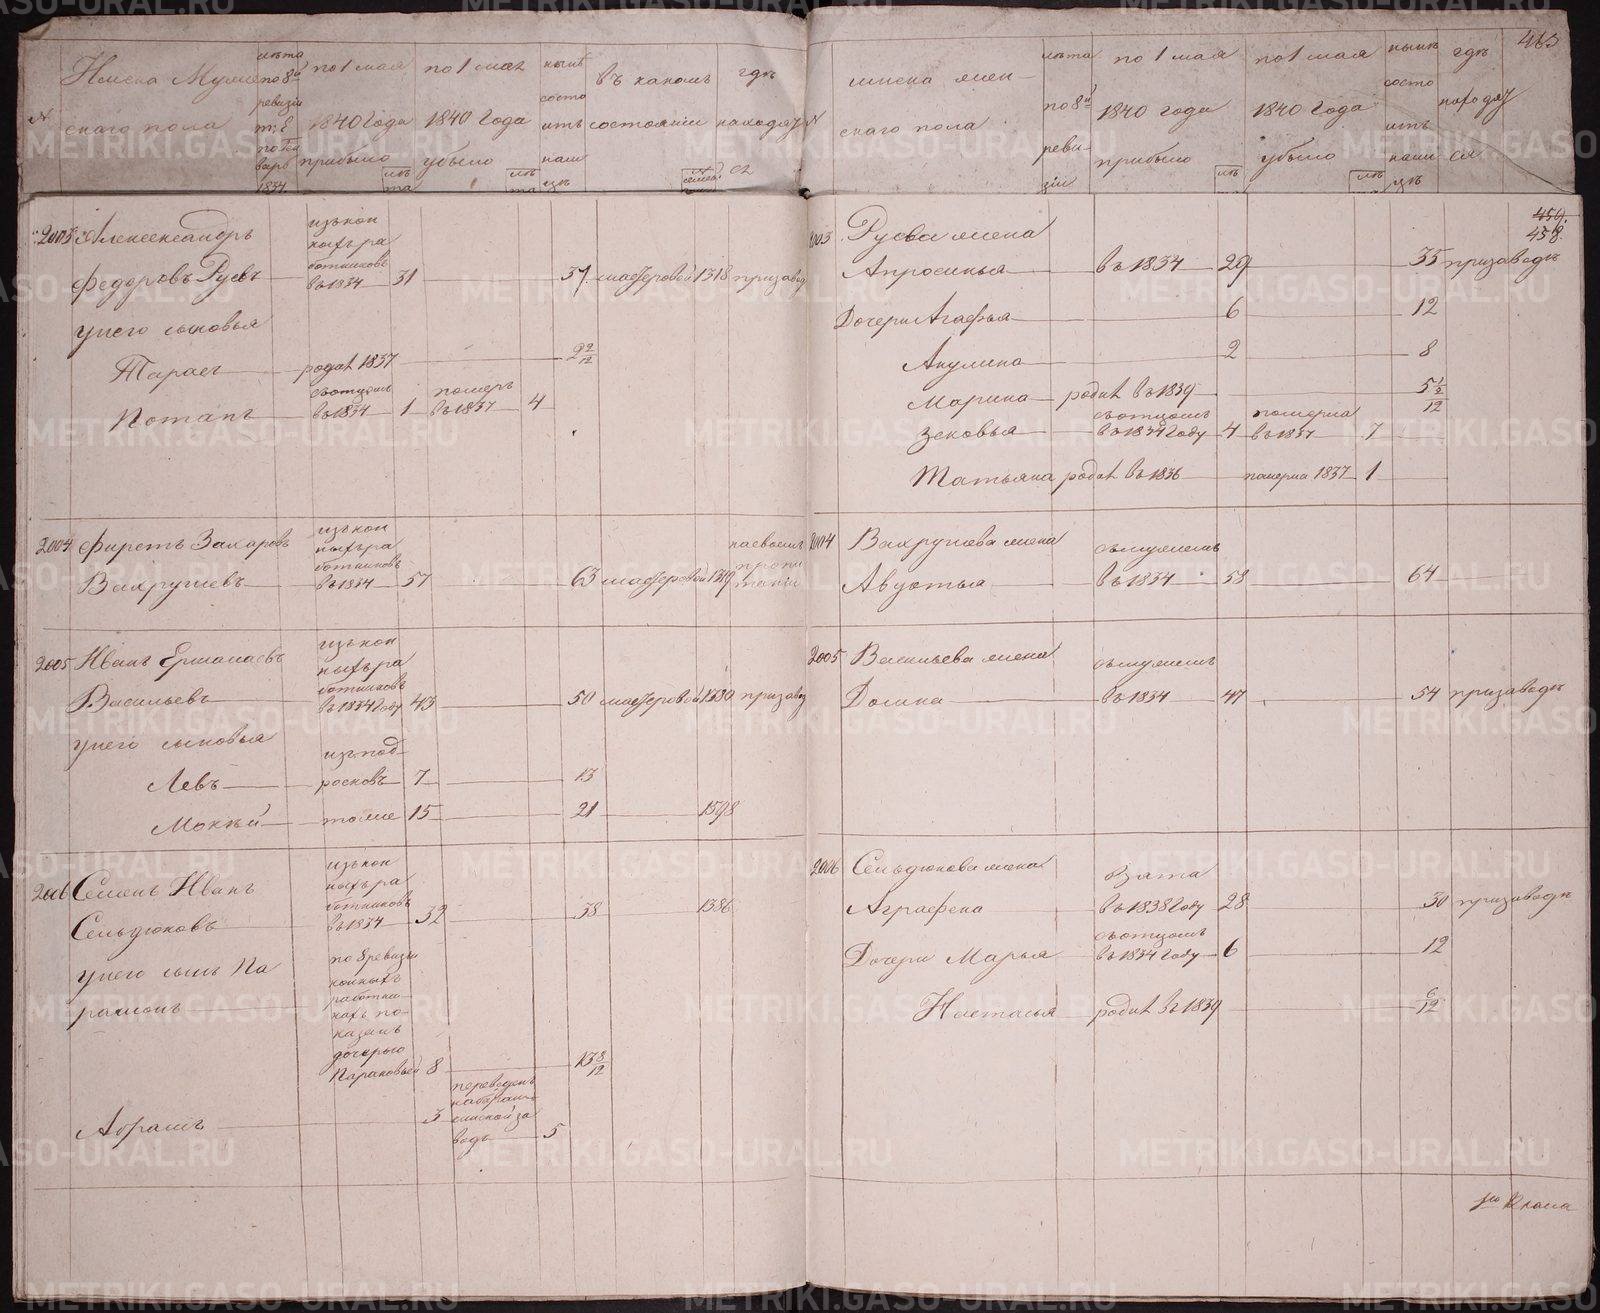 463
N
Имена Мужескаго пола
лѣта по 8й ревизіи
1834
по 1 мая 1840 Года прибыло
лѣта
по 1 мая 1840 Года убыло
лѣта
нынѣ состоитъ наш
въ какомъ состояніи
семей
гдѣ находятся
N
имена женскаго пола
лѣта по 8й ревизіи
по 1 мая 1840 года прибыло
лѣ
по 1 мая 1840 Года убыло
лѣ
нынѣ состоитъ
гдѣ находятся
459.
458.
2003 Александръ
изъ кон
ныхъ ра
ботниковъ
Федоровъ Руевъ въ 1834 31 37 мастеровой 1318 при завод
у него сыновья
Тарасъ родил 1837 2 9/12
съ отцомъ померъ
Потапъ въ 1834 1 въ 1837 4
2004 Фирстъ Захаровъ
изъ кон
ныхъ ра
ботниковъ
Вахрушевъ въ 1834 57 63 мастеровой 1319
на своемъ
пропи
таніи
2005 Иванъ Ермолаевъ
изъ кон
ныхъ ра
ботниковъ
Васильевъ въ 1834 Году 43 50 мастеровой 1380 при завод
у него сыновья
изъ под
Левъ росковъ 7 13
Мокѣй тоже 15 21 1598
2006 Семенъ Иванъ
изъ кон
ныхъ ра
ботниковъ
Сельдюковъ въ 1834 32 38 1386
у него сынъ Па
рамонъ
по 8 ревизіи
конныхъ
работни
кахъ по
казанъ
дочерью
Парасковьей 8 13 8/12
Абрамъ 3
переведенъ
за
водъ 5
2003 Руева жена
Апросинья въ 1834 29 35 при заводѣ
Дочери Агафья 6 12
Акулина 2 8
Марина родил въ 1839 5 1/2 12
съ отцомъ померла
Зеновья въ 1834 Году 4 въ 1837 7
Татьяна родил въ 1836 померла 1837 1
2004 Вахрушева жена
съ мужемъ
Авдотья въ 1834 58 64
2005 Васильева жена
съ мужемъ
Домна въ 1834 47 54 при заводѣ
2006 Сельдюкова жена
взята
Аграфена въ 1838 Году 28 30 при заводѣ
съ отцомъ
Дочери Марья въ 1834 Году 6 12
Настасья родил въ 1839 6/12